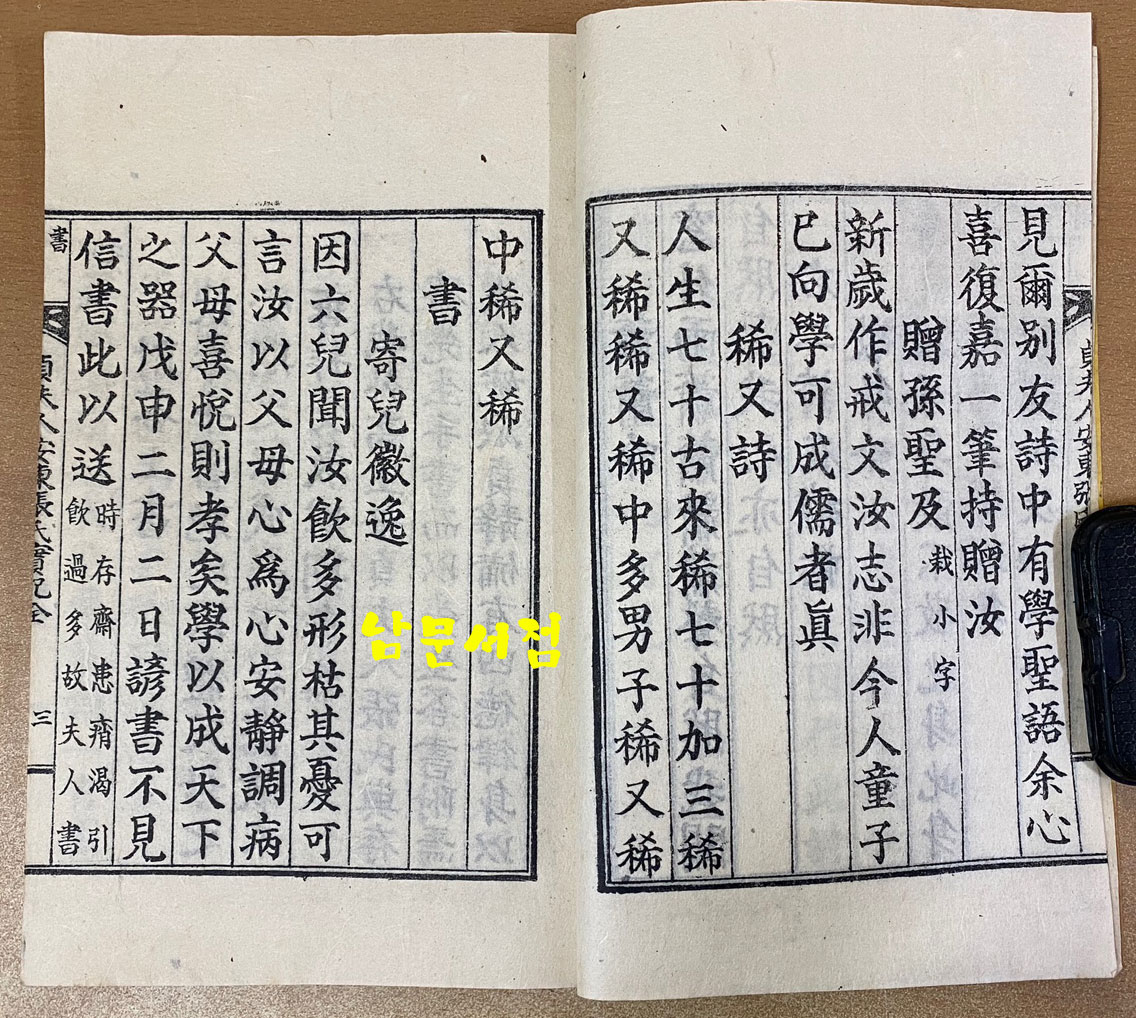 見爾別友詩中有學聖語余心
喜復嘉一筆持贈汝
贈孫聖及栽小字
新歲作戒文汝志非今人童子
已向學可成儒者眞
稀又詩
人生七十古來稀七十加三稀
又稀稀又稀中多男子稀又稀
中稀又稀
書
寄兒徽逸
因六兒聞汝飮多形枯其憂可
言汝以父母心爲心安靜調病
父母喜悅則孝矣學以成天下
之器戊申二月二日諺書不見
信書此以送時存齋患痟渴引
飮過多故夫人書
書
貞夫人安東張氏實紀全
三
남문서점